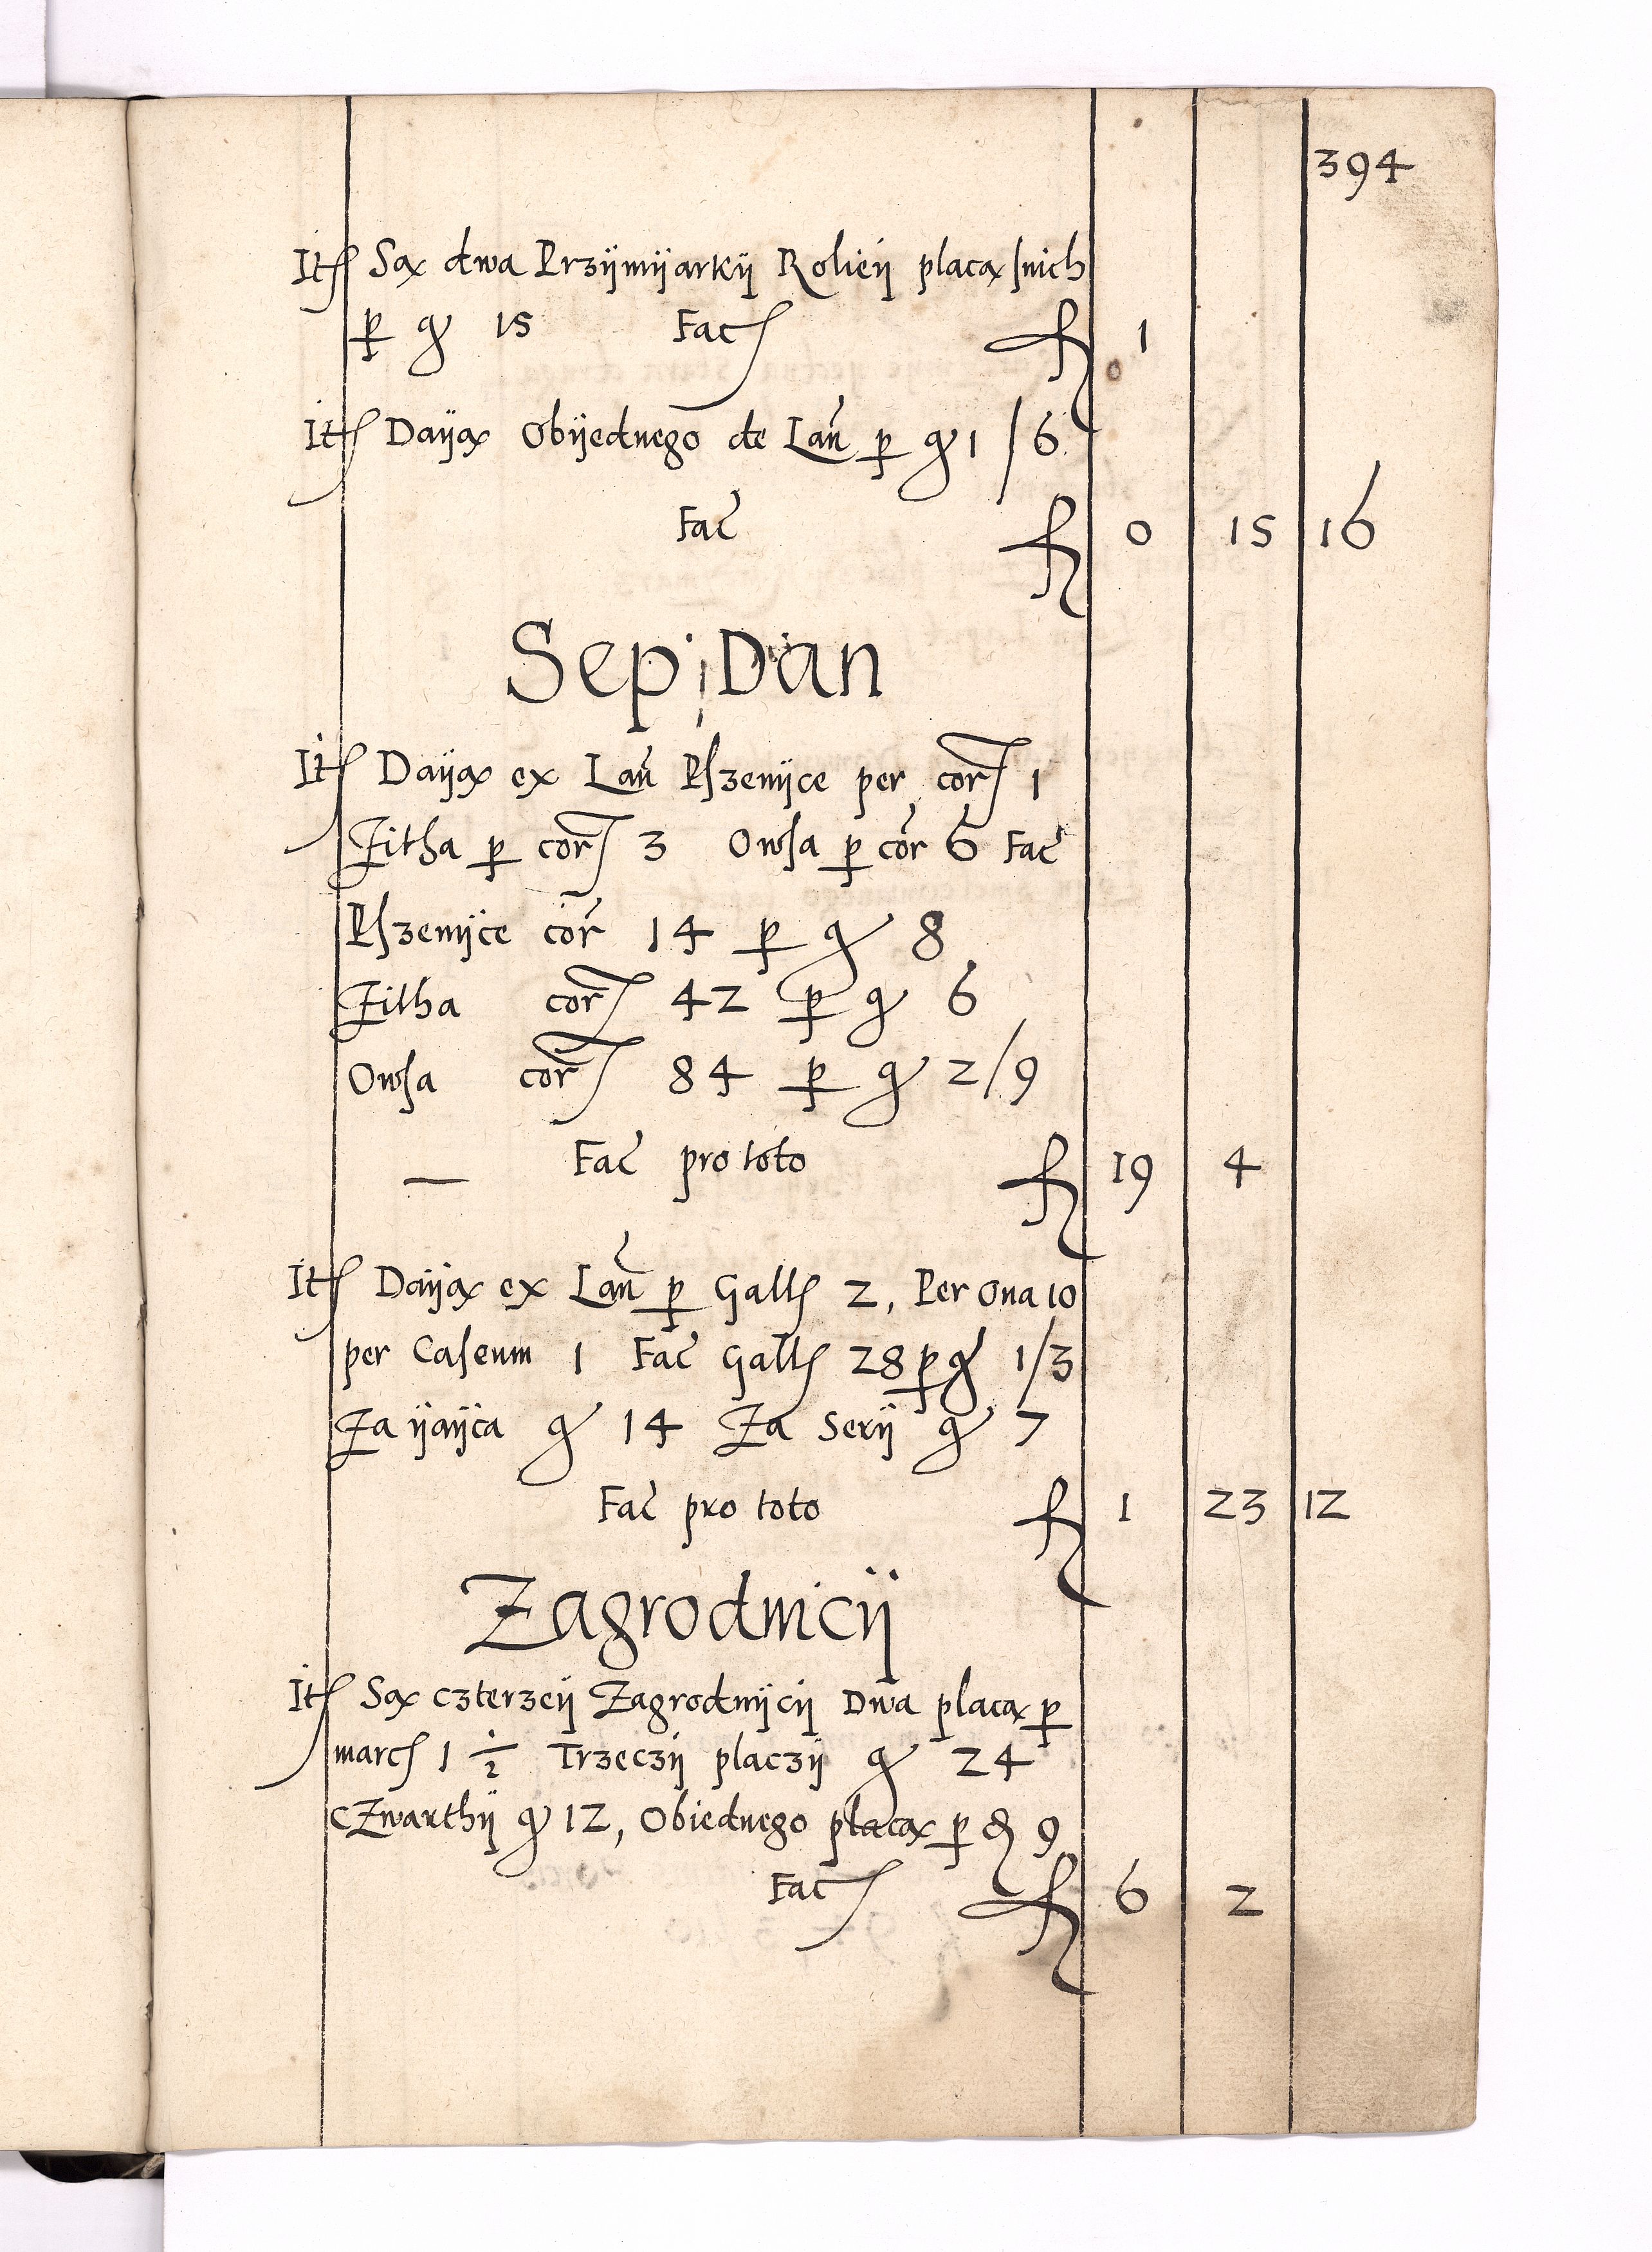 394
Itꝭ Są dwa Przÿmÿarkÿ Roliéÿ placą ſnich
ꝑ gꝛ 15 Facꝭ fl 1
Itꝭ Daÿą Obÿednego de Lan̄ ꝑ gꝛ 1/6
Fac̄ fl 0 15 16
Sep ÿ Dan
Itꝭ Daÿą ex Lan̄ Pſzenÿce per corꝭ 1
Zitha ꝑ corꝭ 3 Owſa ꝑ cor̄ 6 Fac̄
Pſzenÿce cor̄ 14 ꝑ gꝛ 8
Zitha corꝭ 42 ꝑ gꝛ 6
Owſa corꝭ 84 ꝑ gꝛ 2/9
Fac̄ pro toto fl 19 4
Itꝭ Daÿą ex Lan̄ ꝑ Gallꝭ 2, Per Oua 10
per Caſeum 1 Fac̄ Gallꝭ 28 ꝑ gꝛ 1/3
Za ÿaÿca gꝛ 14 Za Serÿ gꝛ 7
Fac̄ pro toto fl 1 23 12
Zagrodnicÿ
Itꝭ Są czterzeÿ Zagrodnÿcÿ Dwa placą ꝑ
marcꝭ 1 1/2 Trzeczÿ placzÿ gꝛ 24
CZwarthÿ gꝛ 12, Obiednego placą ꝑ ₰ 9
Facꝭ fl 6 2